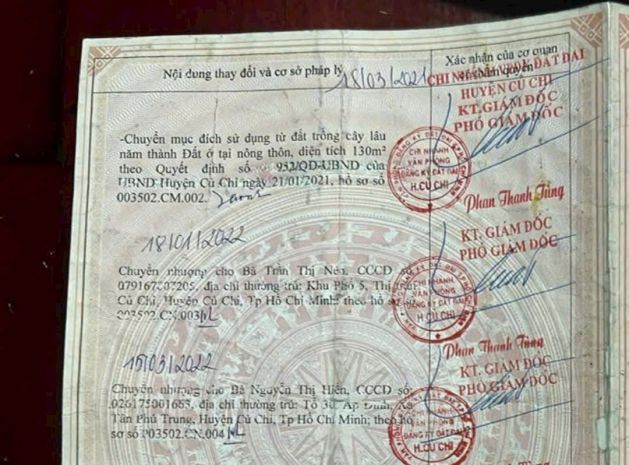 Nội dung thay đổi và cơ sở pháp lý
Xác nhận của cơ quan
có thẩm quyền
18/03/2021
CHI NHÁNH VPĐK ĐẤT ĐAI
HUYỆN CỦ CHI
KT. GIÁM ĐỐC
PHÓ GIÁM ĐỐC
-Chuyển mục đích sử dụng từ đất trồng cây lâu
năm thành Đất ở tại nông thôn, diện tích 130m²
theo Quyết định số 952/QĐ-UBND của
UBND Huyện Củ Chi ngày 21/01/2021, hồ sơ số
003502.CM.002.
CHI NHÁNH
VĂN PHÒNG
ĐĂNG KÝ ĐẤT ĐAI
H.CỦ CHI
Phan Thanh Tùng
18/01/2022
KT. GIÁM ĐỐC
PHÓ GIÁM ĐỐC
Chuyển nhượng cho Bà Trần Thị Nên, CCCD số
địa chỉ thường trú: Khu Phố 5, Thị trấn
Củ Chi, Huyện Củ Chi, Tp Hồ Chí Minh; theo hồ sơ
003502.CN.003
CHI NHÁNH
VĂN PHÒNG
ĐĂNG KÝ ĐẤT ĐAI
H.CỦ CHI
Phan Thanh Tùng
15/03/2022
KT. GIÁM ĐỐC
PHÓ GIÁM ĐỐC
Chuyển nhượng cho Bà Nguyễn Thị Hiên, CCCD số
026175001663, địa chỉ thường trú: Tổ 3, Ấp Đình, Xã
Tân Phú Trung, Huyện Củ Chi, Tp Hồ Chí Minh; theo hồ
sơ số 003502.CN.004
CHI NHÁNH
VĂN PHÒNG
ĐĂNG KÝ ĐẤT ĐAI
H.CỦ CHI